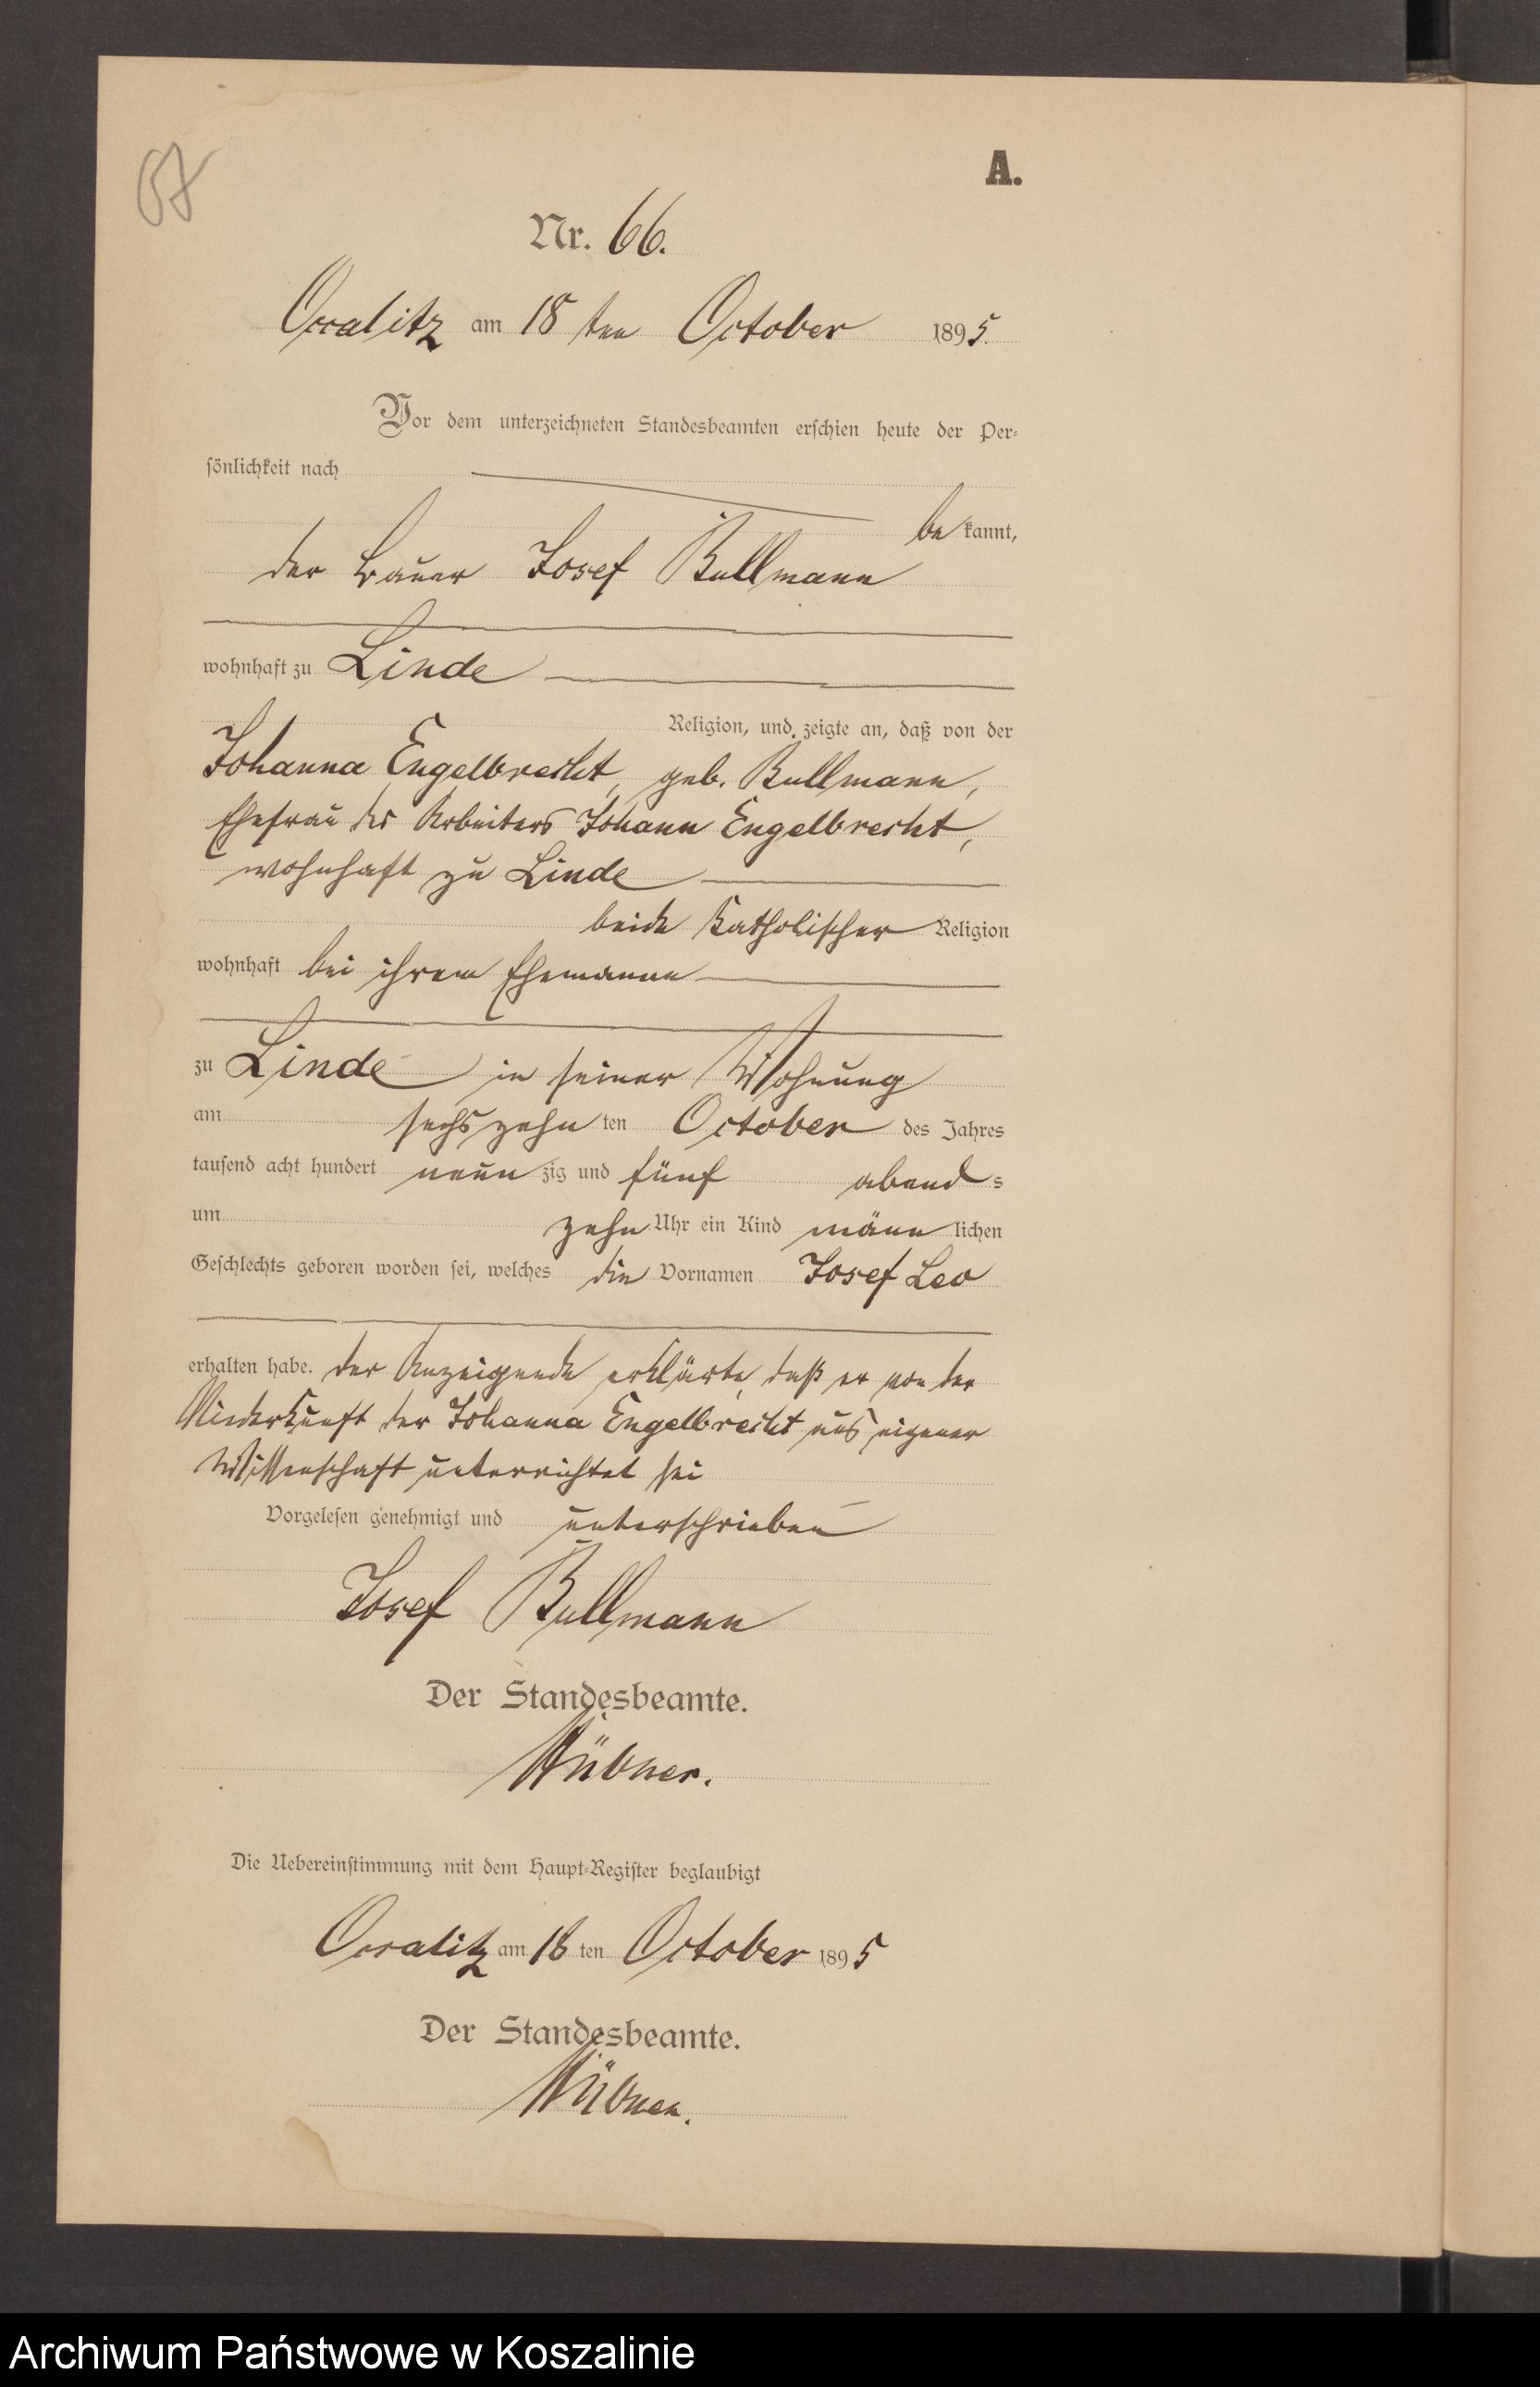 67
A.
Nr. 66.
Occalitz am 18 ten October 1895.
Vor dem unterzeichneten Standesbeamten erschien heute der Per-
sönlichkeit nach
be kannt,
der Bauer Josef Bullmann
wohnhaft zu Linde
Religion, und zeigte an, daß von der
Johanna Engelbrecht, geb. Bullmann,
Ehefrau des Arbeiters Johann Engelbrecht,
wohnhaft zu Linde
beide katholischer Religion
wohnhaft bei ihrem Ehemanne
zu Linde in seiner Wohnung
am sechszehn ten October des Jahres
tausend acht hundert neun zig und fünf abend s
um zehn Uhr ein Kind männ lichen
Geschlechts geboren worden sei, welches die Vornamen Josef Leo
erhalten habe. Der Anzeigende erklärte, daß er von der
Niederkunft der Johanna Engelbrecht aus eigener
Wissenschaft unterrichtet sei
Vorgelesen genehmigt und unterschrieben
Josef Bullmann
Der Standesbeamte.
Hübner.
Die Uebereinstimmung mit dem Haupt-Register beglaubigt
Occalitz am 18 ten October 1895
Der Standesbeamte.
Hübner.
Archiwum Państwowe w Koszalinie